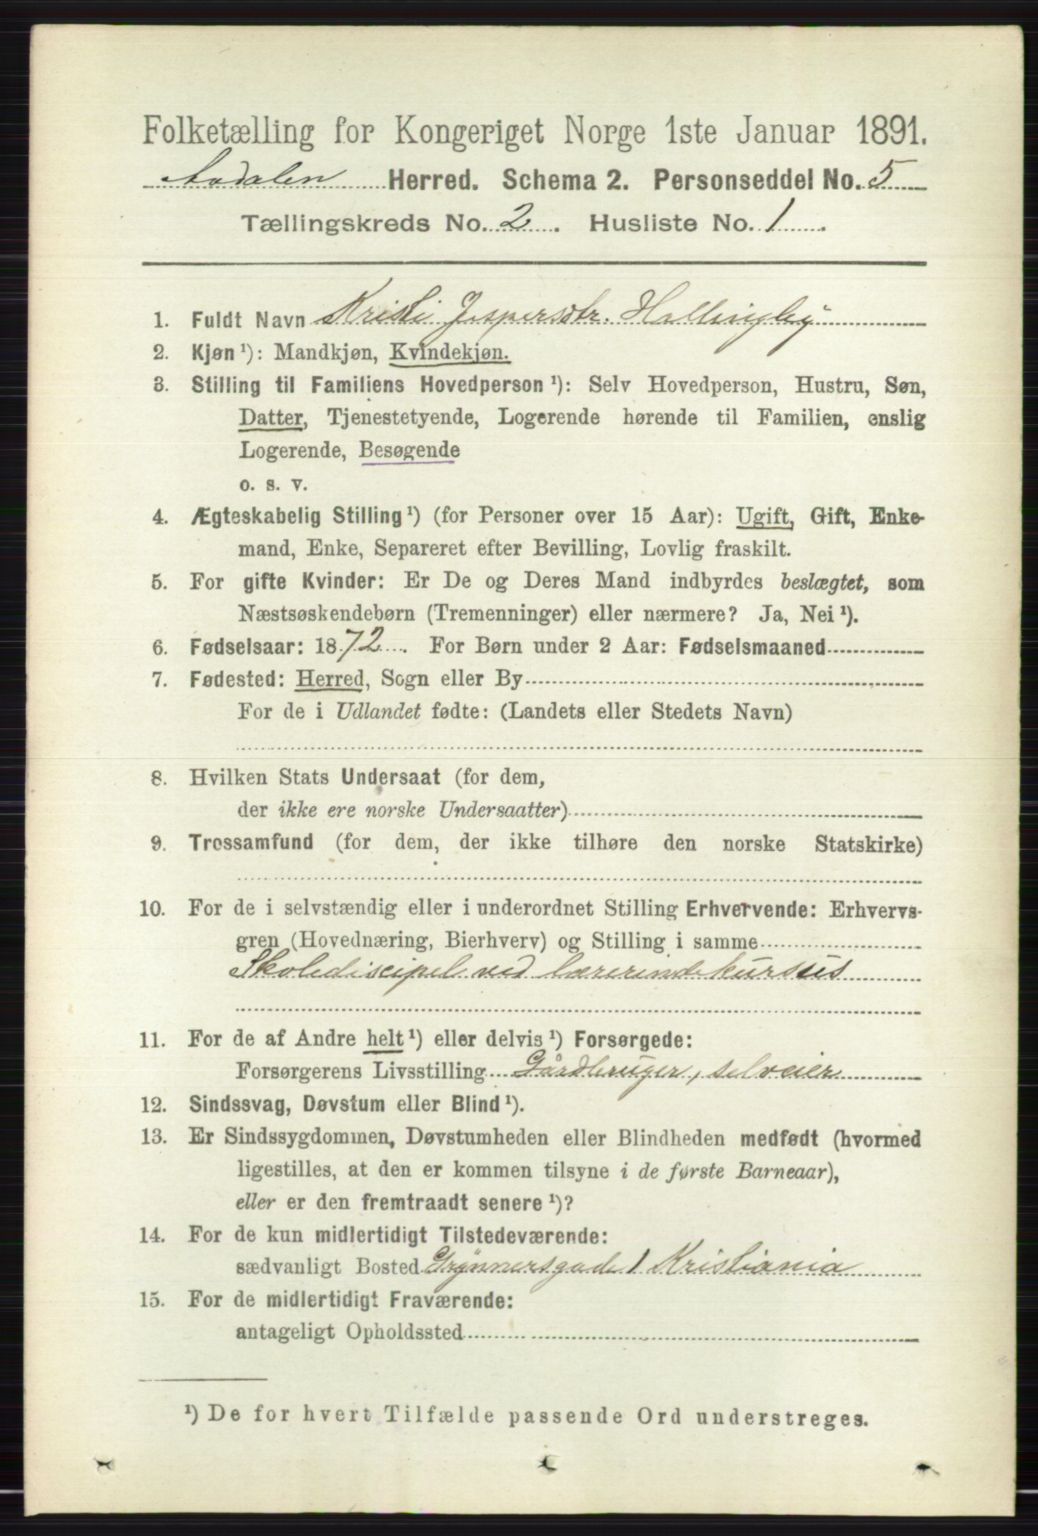 Folketælling for Kongeriget Norge 1ste Januar 1891.
Aadalen Herred. Schema 2. Personseddel No. 5
Tællingskreds No. 2. Husliste No. 1.
1. Fuldt Navn Kristi Jespersdtr. Hallingby
2. Kjøn ¹): Mandkjøn, Kvindekjøn.
3. Stilling til Familiens Hovedperson ¹): Selv Hovedperson, Hustru, Søn,
Datter, Tjenestetyende, Logerende hørende til Familien, enslig
Logerende, Besøgende
o. s. v.
4. Ægteskabelig Stilling ¹) (for Personer over 15 Aar): Ugift, Gift, Enke-
mand, Enke, Separeret efter Bevilling, Lovlig fraskilt.
5. For gifte Kvinder: Er De og Deres Mand indbyrdes beslægtet, som
Næstsøskendebørn (Tremenninger) eller nærmere? Ja, Nei ¹).
6. Fødselsaar: 1872. For Børn under 2 Aar: Fødselsmaaned
7. Fødested: Herred, Sogn eller By
For de i Udlandet fødte: (Landets eller Stedets Navn)
8. Hvilken Stats Undersaat (for dem,
der ikke ere norske Undersaatter)
9. Trossamfund (for dem, der ikke tilhøre den norske Statskirke)
10. For de i selvstændig eller i underordnet Stilling Erhvervende: Erhvervs-
gren (Hovednæring, Bierhverv) og Stilling i samme
Skolediscipel ved lærerindekursus
11. For de af Andre helt ¹) eller delvis ¹) Forsørgede:
Forsørgerens Livsstilling Gårdbruger, selveier
12. Sindssvag, Døvstum eller Blind ¹).
13. Er Sindssygdommen, Døvstumheden eller Blindheden medfødt (hvormed
ligestilles, at den er kommen tilsyne i de første Barneaar),
eller er den fremtraadt senere ¹)?
14. For de kun midlertidigt Tilstedeværende:
sædvanligt Bosted Grønnersgade 1 Kristiania
15. For de midlertidigt Fraværende:
antageligt Opholdssted
¹) De for hvert Tilfælde passende Ord understreges.